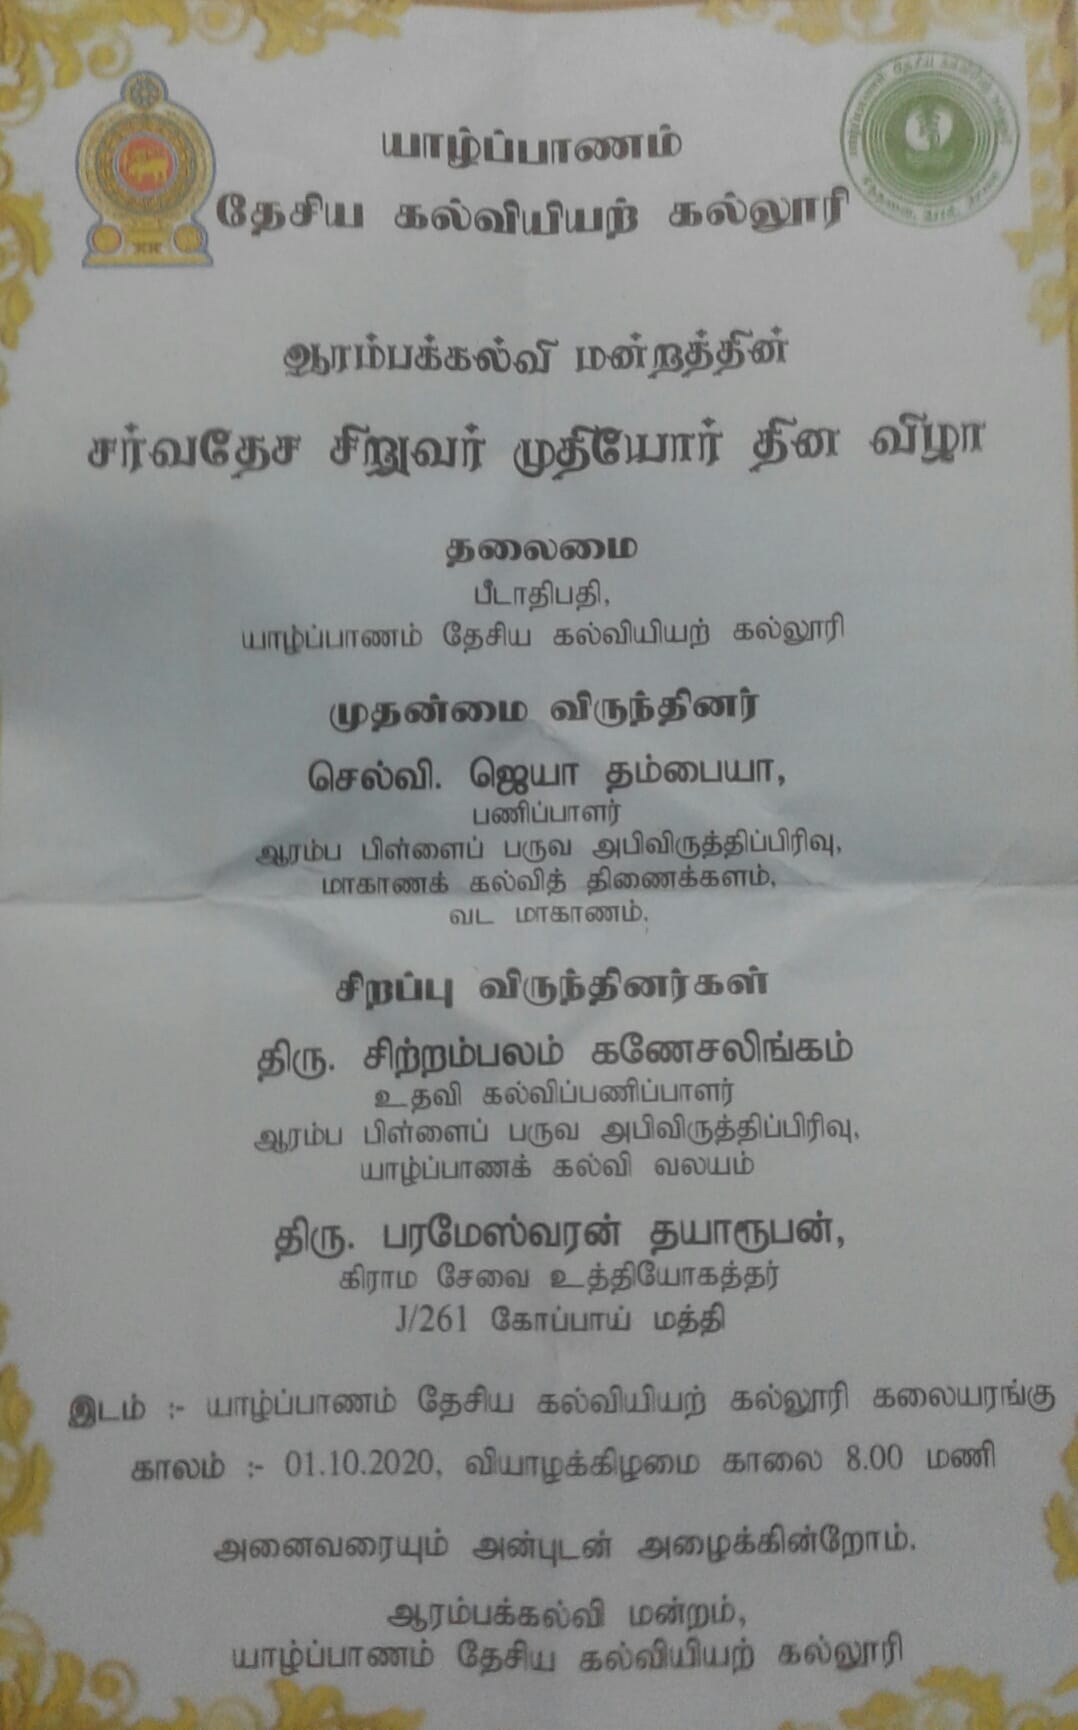 யாழ்ப்பாணம்
தேசிய கல்வியியற் கல்லூரி
ஆரம்பக்கல்வி மன்றத்தின்
சர்வதேச சிறுவர் முதியோர் தின விழா
தலைமை
பீடாதிபதி,
யாழ்ப்பாணம் தேசிய கல்வியியற் கல்லூரி
முதன்மை விருந்தினர்
செல்வி. ஜெயா தம்பையா,
பணிப்பாளர்
ஆரம்ப பிள்ளைப் பருவ அபிவிருத்திப்பிரிவு,
மாகாணக் கல்வித் திணைக்களம்,
வட மாகாணம்.
சிறப்பு விருந்தினர்கள்
திரு. சிற்றம்பலம் கணேசலிங்கம்
உதவி கல்விப்பணிப்பாளர்
ஆரம்ப பிள்ளைப் பருவ அபிவிருத்திப்பிரிவு,
யாழ்ப்பாணக் கல்வி வலயம்
திரு. பரமேஸ்வரன் தயாரூபன்,
கிராம சேவை உத்தியோகத்தர்
J/261 கோப்பாய் மத்தி
இடம் :- யாழ்ப்பாணம் தேசிய கல்வியியற் கல்லூரி கலையரங்கு
காலம் :- 01.10.2020, வியாழக்கிழமை காலை 8.00 மணி
அனைவரையும் அன்புடன் அழைக்கின்றோம்.
ஆரம்பக்கல்வி மன்றம்,
யாழ்ப்பாணம் தேசிய கல்வியியற் கல்லூரி